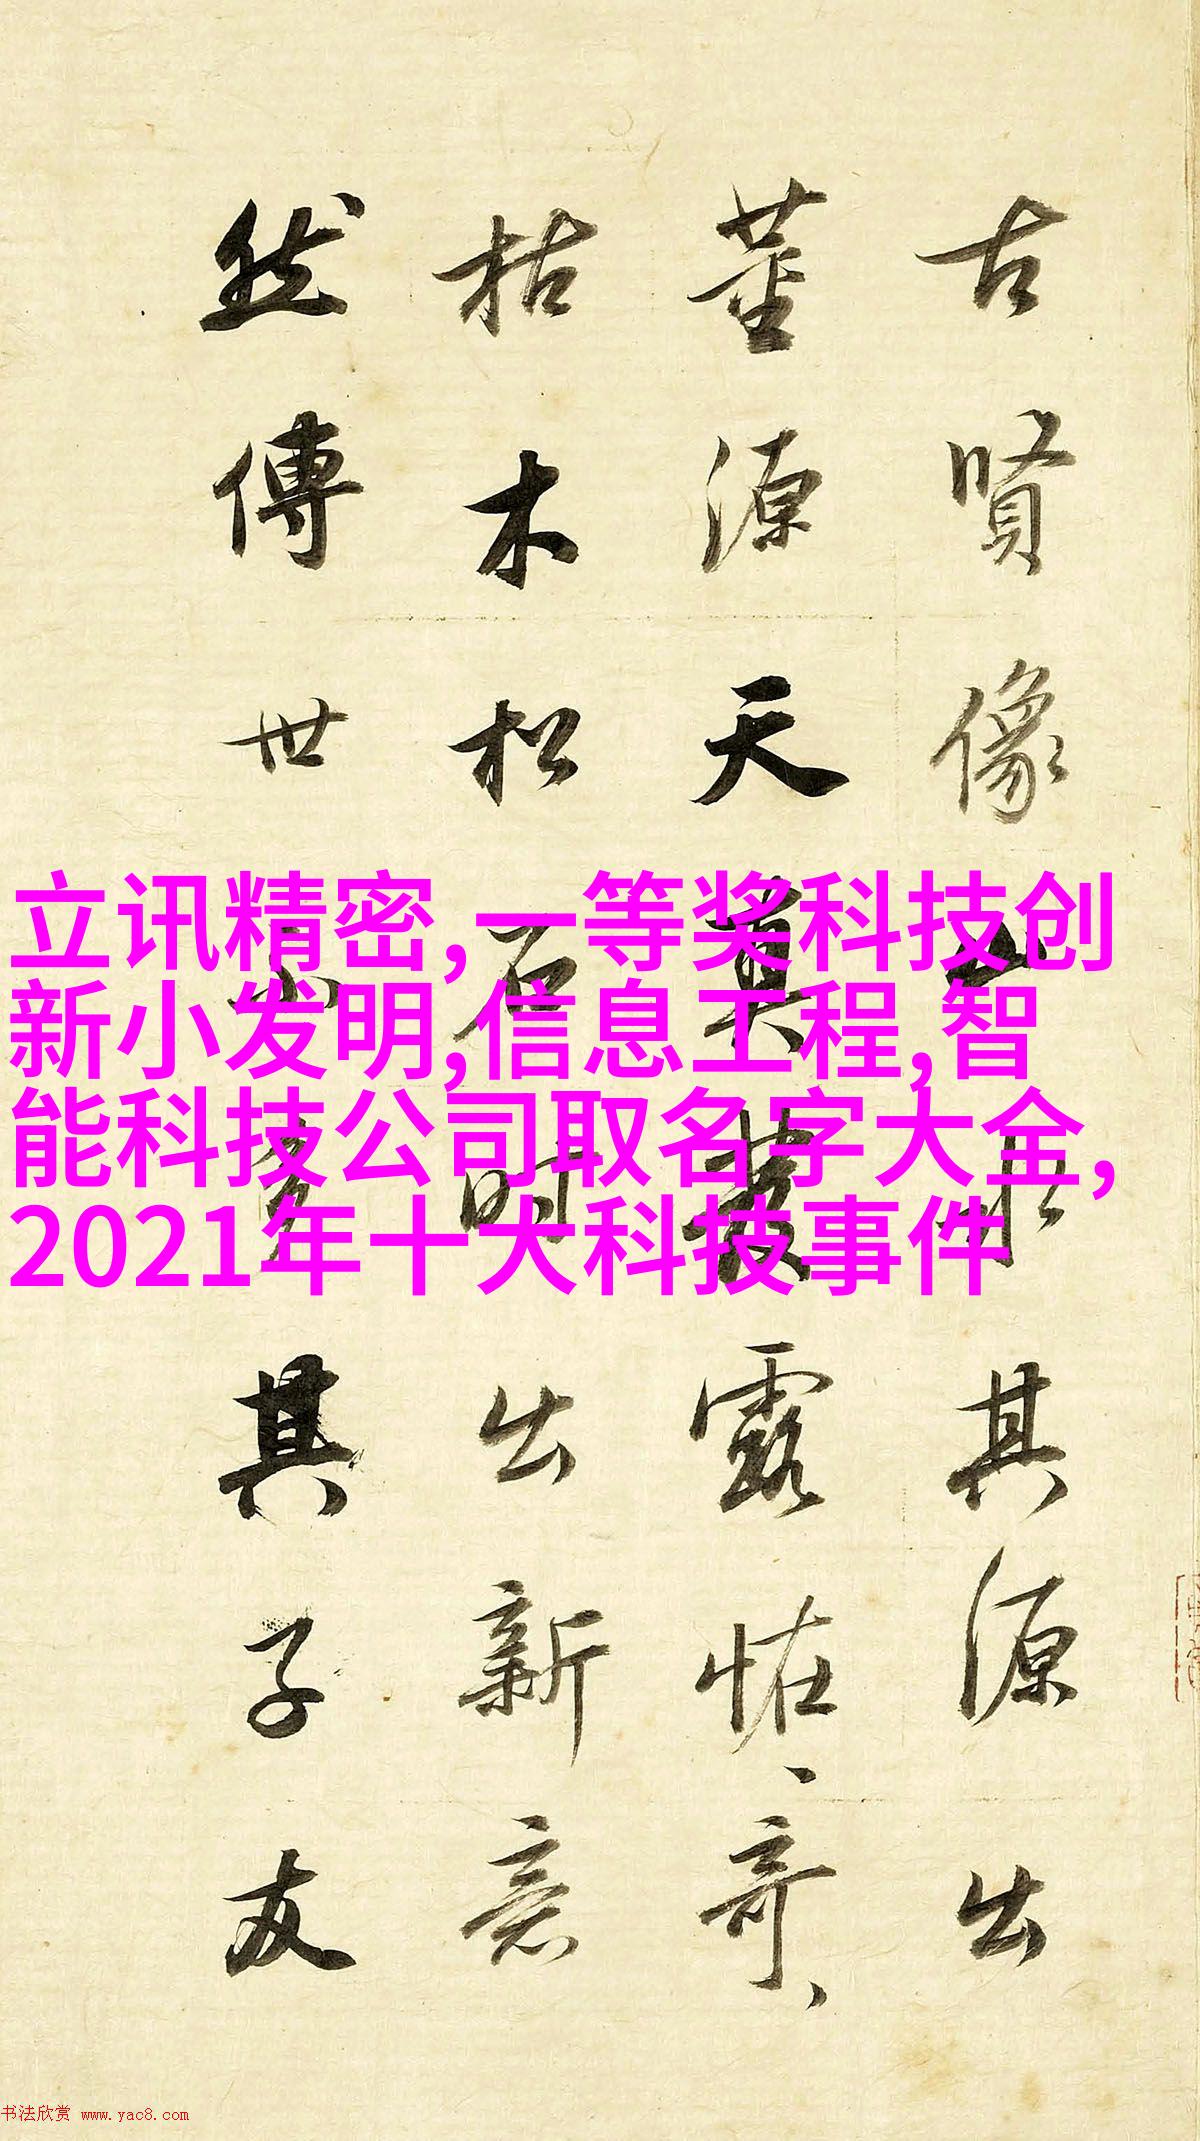 古賢像山水其源出
董源天真發露恠、奇、
枯木松石時出新意
然傳世不多其子友
立讯精密,一等奖科技创
新小发明,信息工程,智
能科技公司取名字大全,
2021年十大科技事件
书法欣赏 www.yac8.com